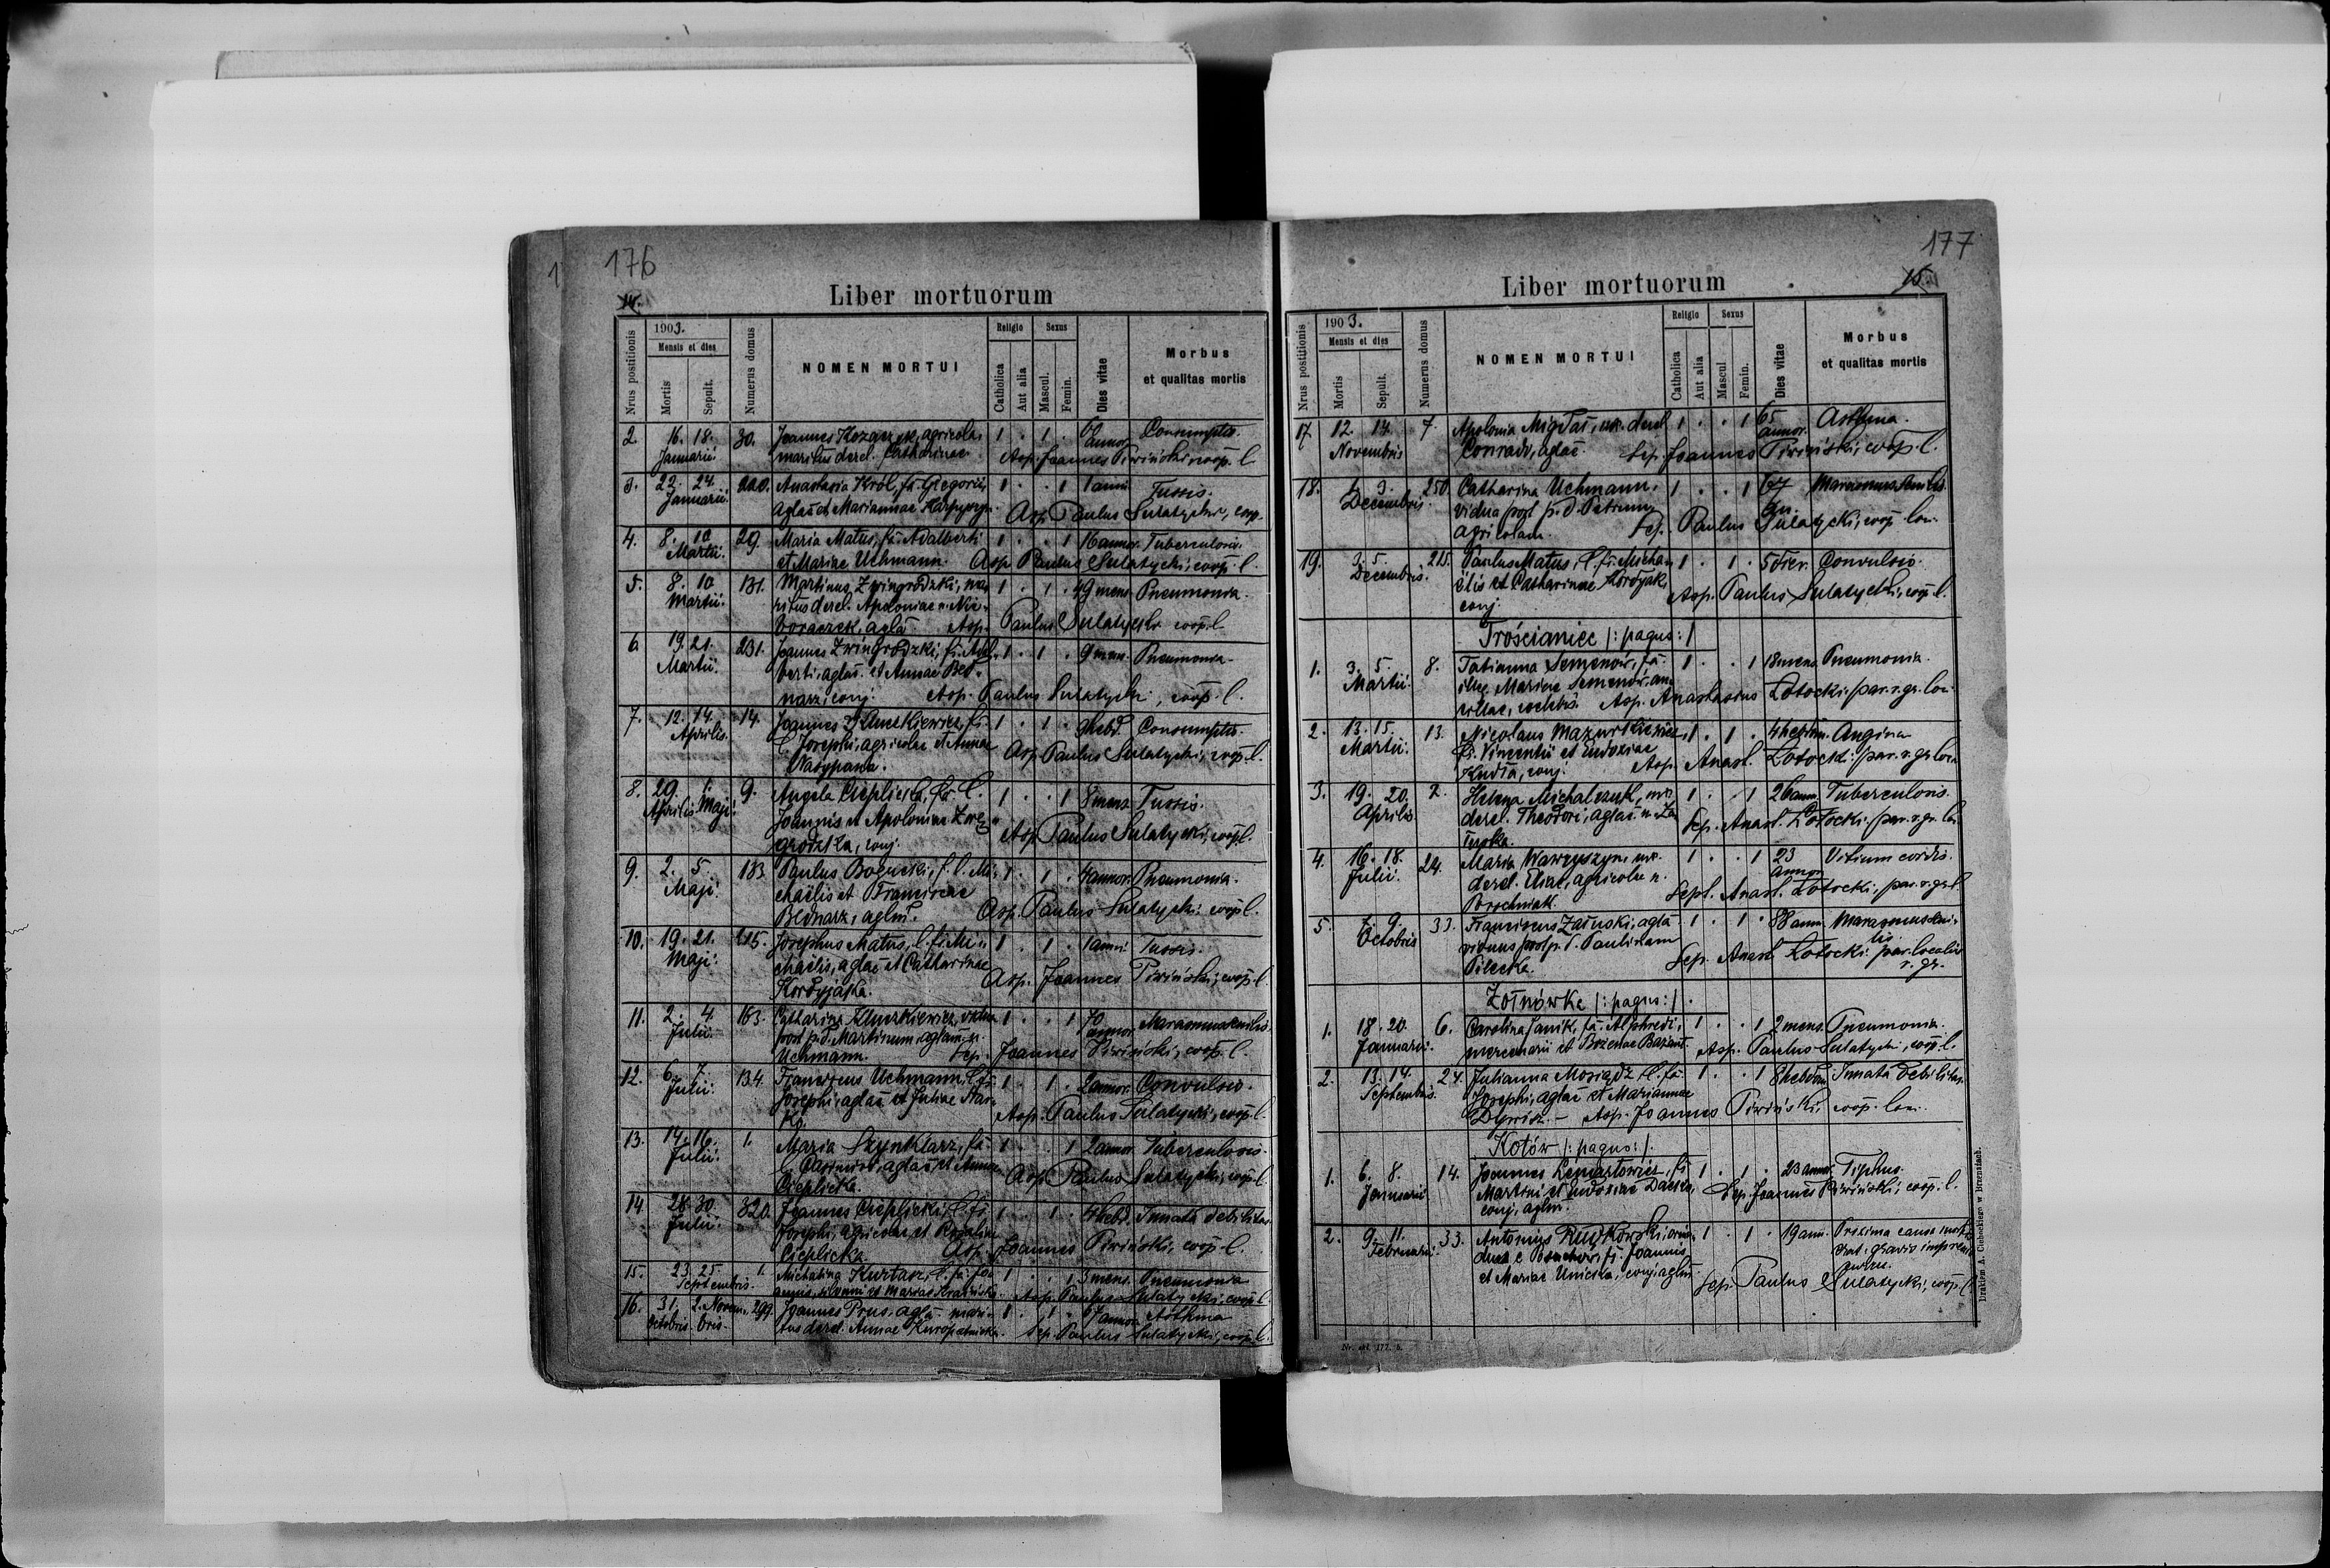 176
14.
Liber mortuorum
Nrus postitionis
1903.
Mensis et dies
Mortis
Sepult.
Numerus domus
NOMEN MORTUI
Religio
Catholica
Aut alia
Sexus
Mascul.
Femin.
Dies vitae
Morbus
et qualitas mortis
2. 16. 18. 30. Joannes agricola, 1 . 1 . annor. Consumptio.
Januarii. maritus derel. Catharinae Asp. Joannes Piwiński, coop. l.
3. 22. 24. Anastasia Król, fa Gregorii, 1 . . 1 1 anni Tussis.
Januarii. et Mariannae Asp. Paulus Sulatycki, coop.
4. 8. 10 29. Maria Matus, fa. Adalberti 1 . . 1 16 annor. Tuberculosis.
Martii. et Mariae Uchmann. Asp. Paulus Sulatycki, coop. l.
5. 8. 10 131. Martinus Zwingrodzki, ma- 1 . 1 . 49 mens. Pneumonia.
Martii. ritus derel. Apoloniae n. Nie-
agla Asp. Paulus Sulatycki coop. l.
6 19. 21. 231. Joannes Zwingrodzki, fi. Adal- 1 . 1 . 9 men. Pneumonia.
Martii. berti, aglae. et Annae Bed-
narz, conj. Asp. Paulus Sulatycki, coop. l.
7. 12. 14. 14. Joannes Kluszkiewicz, fi. 1 . 1 . hebd. Consumptio.
Aprilis. l. Josephi, agricolae et Annae
Asp. Paulus Sulatycki, coop. l.
8. 29. 1. 9. Angela Cieplicka, fa. l. 1 . . 1 8 mens. Tussis.
Aprilis Maji. Joannis et Apoloniae
conj. Asp. Paulus Sulatycki, coop. l.
9. 2. 5. 183. Paulus Bogucki, f. l. Mi- 1 . 1 . 4 annor. Pneumonia.
Maji. chaëlis et Franciscae
Bednarz, aglm. Asp. Paulus Sulatycki coop. l.
10. 19. 21. 215. Josephus Matus, l. fi. Mi- 1 . 1 . 1 anni Tussis.
Maji. chaëlis, aglae et Catharinae
Asp. Joannes Piwiński, coop. l.
11. 2. 4. 163. Catharina Kluszkiewicz, vidua 1 . . 1 70 annor. Marasmus senilis.
Julii. post p. d. Martinum, aglam n.
Uchmann. Sep. Joannes Piwiński, coop. l.
12. 6. 7. 134. Franciscus Uchmann, l. fi. 1 . 1 . 2 annor. Convulsio.
Julii. Josephi, aglae et Juliae
Asp. Paulus Sulatycki, coop. l.
13. 14. 16. 1. Maria Szynklarz, fa. 1 . . 1 2 annor. Tuberculosis.
Julii. l. Casimiri, aglae et Annae
Cieplicka Asp. Paulus Sulatycki, coop. l.
14. 28. 30. 320. Joannes Cieplicki, l. fi. 1 . 1 . 4 hebd. Innata debilitas.
Julii. Josephi, agricolae et Rosaliae
Cieplicka Asp. Joannes Piwiński, coop. l.
15. 23. 25. 1. Michalina Kurtasz, l. fa. Jo- 1 . . 1 3 mens. Pneumonia
Septembris. annis, et Mariae Asp. Paulus Sulatycki, coop. l.
16. 31. 2. Novem- 299. Joannes Prus, agla mari- 1 . 1 . 67 annor. Asthma
Octobris. bris. tus derel. Annae Kuropatnicka. Sep. Paulus Sulatycki, coop. l.
177
15.
Liber mortuorum
Nrus postitionis
1903.
Mensis et dies
Mortis
Sepult.
Numerus domus
NOMEN MORTUI
Religio
Catholica
Aut alia
Sexus
Mascul
Femin.
Dies vitae
Morbus
et qualitas mortis
17. 12. 14. 7. Apolonia Migdał, ux. derel 1 . . 1 65 annor. Asthma.
Novembris Conradi, aglae. Sep. Joannes Piwiński, coop. l.
18. 1. 3. 250. Catharina Uchmann, 1 . . 1 67 an. Marasmus senilis.
Decembris. vidua post p. d. Petrum,
agricolam. Sep. Paulus Sulatycki, coop. loc.
19. 3. 5. 215. Paulus Matus, l. fi. Micha- 1 . 1 . 5 dier. Convulsio.
Decembris. ëlis et Catharinae Kordyjak,
conj. Asp. Paulus Sulatycki, coop. l.
Trościaniec /: pagus :/
1. 3. 5. 8. Tatianna Semenów, fa. 1 . . 1 18 mens. Pneumonia.
Martii. illeg. Mariae Semenów, an-
cillae, coelebis. Asp. Anastasius Łotocki, par. r. gr. loc.
2. 13. 15. 13. Nicolaus Mazurkiewicz, 1 . 1 . 4 hebdom. Angina
Martii. fi. Vincentii et Eudoxiae
conj. Asp. Anast. Łotocki, par. r. gr. loc.
3. 19. 20. 2. Helena Michalczuk, ux. 1 . . 1 26 ann. Tuberculosis.
Aprilis derel. Theodori, aglae n. Za-
Sep. Anast. Łotocki, par. r. gr. loc.
4. 16. 18. 24. Maria Wawryszyn, ux. 1 . . 1 23 annor. Vitium cordis.
Julii. derel. Eliae, agricolae n.
Sept. Anast. Łotocki, par. r. gr. l.
5. 7. 9. 33. Franciscus Załuski, agla 1 . 1 . 88 ann. Marasmus seni-
Octobris viduus post p. d. Paulinam lis
Pilecka. Sep. Anast. Łotocki par. localis r. gr.
Żołnówka /: pagus :/.
1. 18. 20. 6. Carolina Janik, fa. Alphredi, 1 . . 1 2 mens. Pneumonia.
Januarii. mercenarii et Bożenae Asp. Paulus Sulatycki, coop. l.
2. 13. 14. 24. Julianna Mosiądz, l. fa. 1 . . 1 8 hebdom. Innata debilitas.
Septembris. Josephi, aglae et Mariannae
Asp. Joannes Piwiński, coop. loc.
Kotów /: pagus :/.
1. 6. 8. 14. Joannes Lenartowicz, fi. 1 . 1 . 23 annor. Typhus.
Januarii Martini et Eudoxiae
conj. aglm. Sep. Joannes Piwiński, coop. l.
2. 9. 11. 33. Antonius Rudkowski, 1 . 1 . 19 ann. Proxima causa mortis
Februarii. fi. Joannis erat: gravis
et Mariae Unicka, conj. aglm
Sep. Paulus Sulatycki, coop. l.
Nr. skł. 177. b.
Drukiem A. Ciehockiego w Brzeżanach.